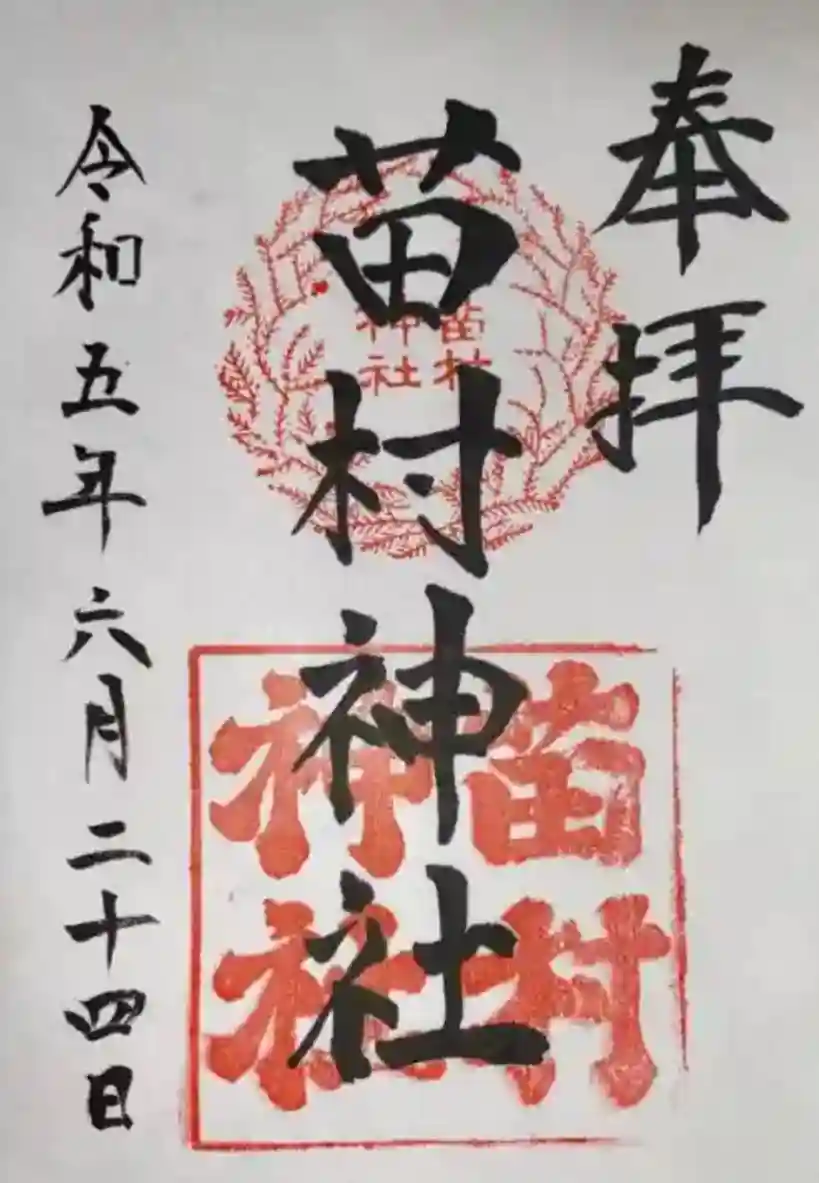 奉拝
苗村神社
苗村
神社
苗村
神社
令和五年六月二十四日